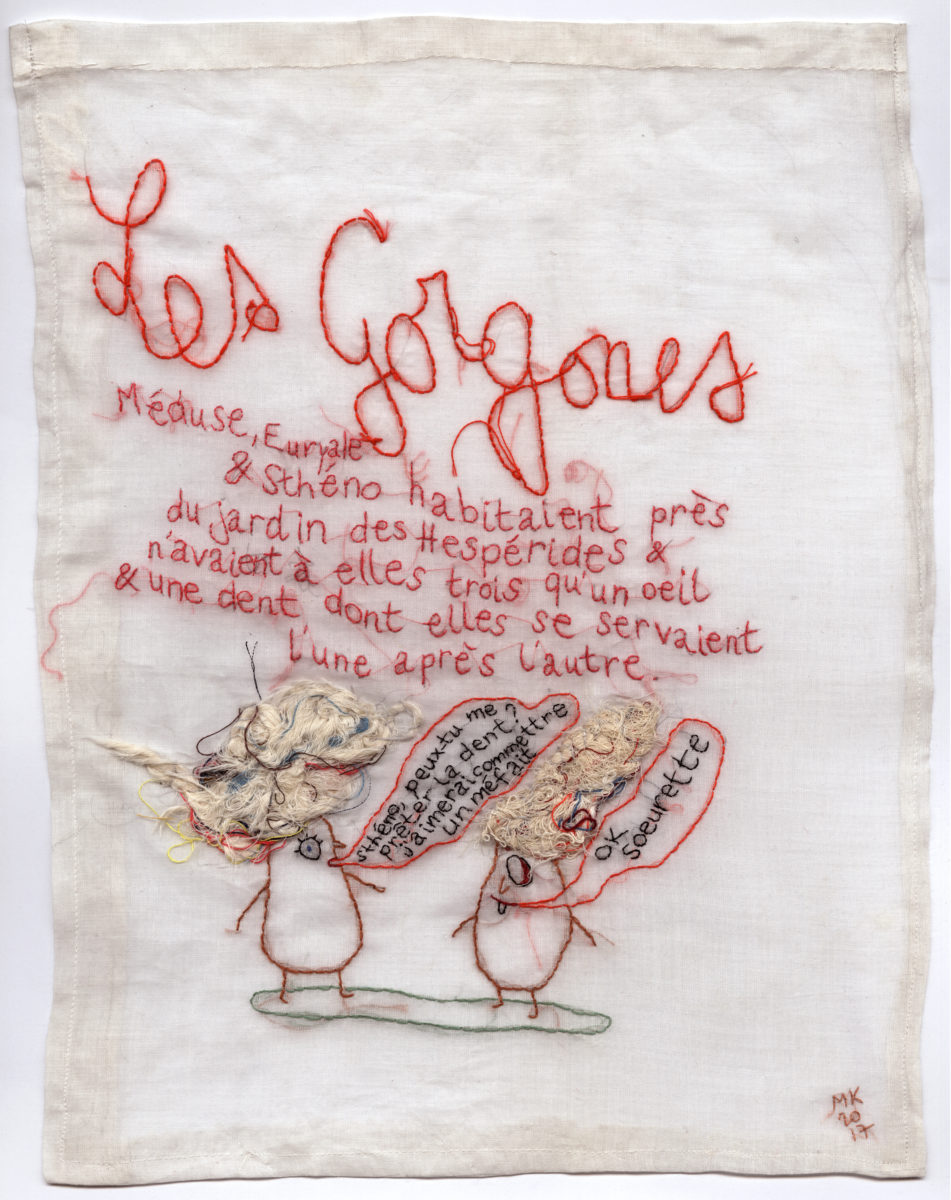 Les Gorgones
Méduse, Euryale
& Sthéno habitaient près
du jardin des Hespérides &
n'avaient à elles trois qu'un oeil
& une dent dont elles se servaient
l'une après l'autre.
sthéno, peux-tu me
prêter la dent?
j'aimerai commettre
un méfait
OK
soeurette
MK
20
17